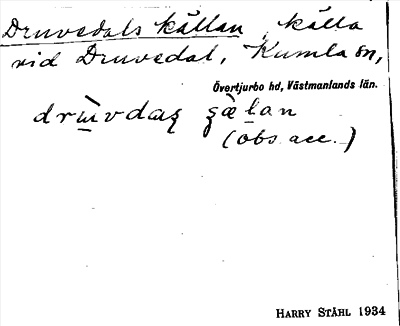 Druvedals källan, källa
vid Druvedal, Kumla sn,
Övertjurbo hd, Västmanlands län.
(obs. acc.)
HARRY STÅHL 1934